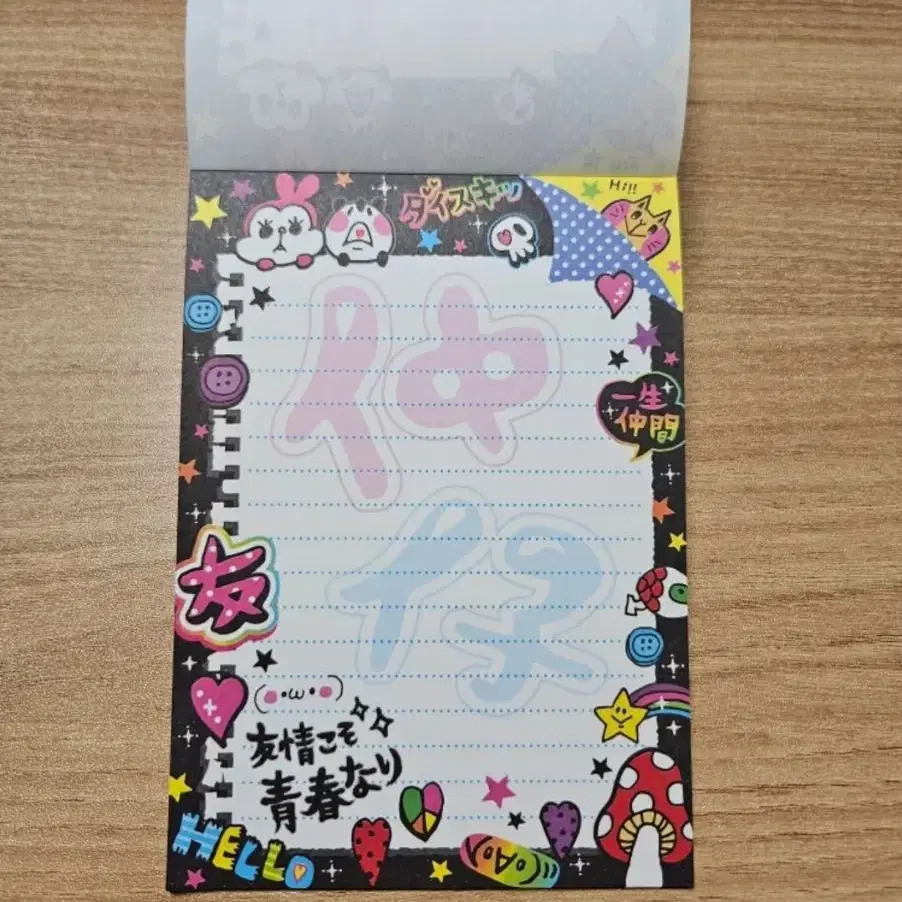 ダイスキッ
Hi!!
仲
一生
仲間
仔
友
(•ω•)
友情こそ
青春なり
HELLO